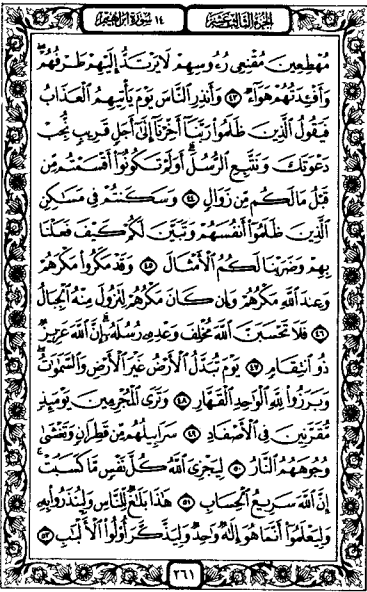 الجزء الثالث عشر
١٤ سورة إبراهيم
مُهْطِعِينَ مُقْنِعِى رُءُوسِهِمْ لَا يَرْتَدُّ إِلَيْهِمْ طَرْفُهُمْ
وَأَفْـِٔدَتُهُمْ هَوَآءٌ ٤٣ وَأَنذِرِ ٱلنَّاسَ يَوْمَ يَأْتِيهِمُ ٱلْعَذَابُ
فَيَقُولُ ٱلَّذِينَ ظَلَمُوا۟ رَبَّنَآ أَخِّرْنَآ إِلَىٰٓ أَجَلٍ قَرِيبٍ نُّجِبْ
دَعْوَتَكَ وَنَتَّبِعِ ٱلرُّسُلَ ۗ أَوَلَمْ تَكُونُوٓا۟ أَقْسَمْتُم مِّن
قَبْلُ مَا لَكُم مِّن زَوَالٍ ٤٤ وَسَكَنتُمْ فِى مَسَـٰكِنِ
ٱلَّذِينَ ظَلَمُوٓا۟ أَنفُسَهُمْ وَتَبَيَّنَ لَكُمْ كَيْفَ فَعَلْنَا
بِهِمْ وَضَرَبْنَا لَكُمُ ٱلْأَمْثَالَ ٤٥ وَقَدْ مَكَرُوا۟ مَكْرَهُمْ
وَعِندَ ٱللَّهِ مَكْرُهُمْ وَإِن كَانَ مَكْرُهُمْ لِتَزُولَ مِنْهُ ٱلْجِبَالُ
٤٦ فَلَا تَحْسَبَنَّ ٱللَّهَ مُخْلِفَ وَعْدِهِۦ رُسُلَهُۥٓ ۗ إِنَّ ٱللَّهَ عَزِيزٌ
ذُو ٱنتِقَامٍ ٤٧ يَوْمَ تُبَدَّلُ ٱلْأَرْضُ غَيْرَ ٱلْأَرْضِ وَٱلسَّمَـٰوَٰتُ ۖ
وَبَرَزُوا۟ لِلَّهِ ٱلْوَٰحِدِ ٱلْقَهَّارِ ٤٨ وَتَرَى ٱلْمُجْرِمِينَ يَوْمَئِذٍ
مُّقَرَّنِينَ فِى ٱلْأَصْفَادِ ٤٩ سَرَابِيلُهُم مِّن قَطِرَانٍ وَتَغْشَىٰ
وُجُوهَهُمُ ٱلنَّارُ ٥٠ لِيَجْزِىَ ٱللَّهُ كُلَّ نَفْسٍ مَّا كَسَبَتْ ۚ
إِنَّ ٱللَّهَ سَرِيعُ ٱلْحِسَابِ ٥١ هَـٰذَا بَلَـٰغٌ لِّلنَّاسِ وَلِيُنذَرُوا۟ بِهِۦ
وَلِيَعْلَمُوٓا۟ أَنَّمَا هُوَ إِلَـٰهٌ وَٰحِدٌ وَلِيَذَّكَّرَ أُو۟لُوا۟ ٱلْأَلْبَـٰبِ ٥٢
٢٦١